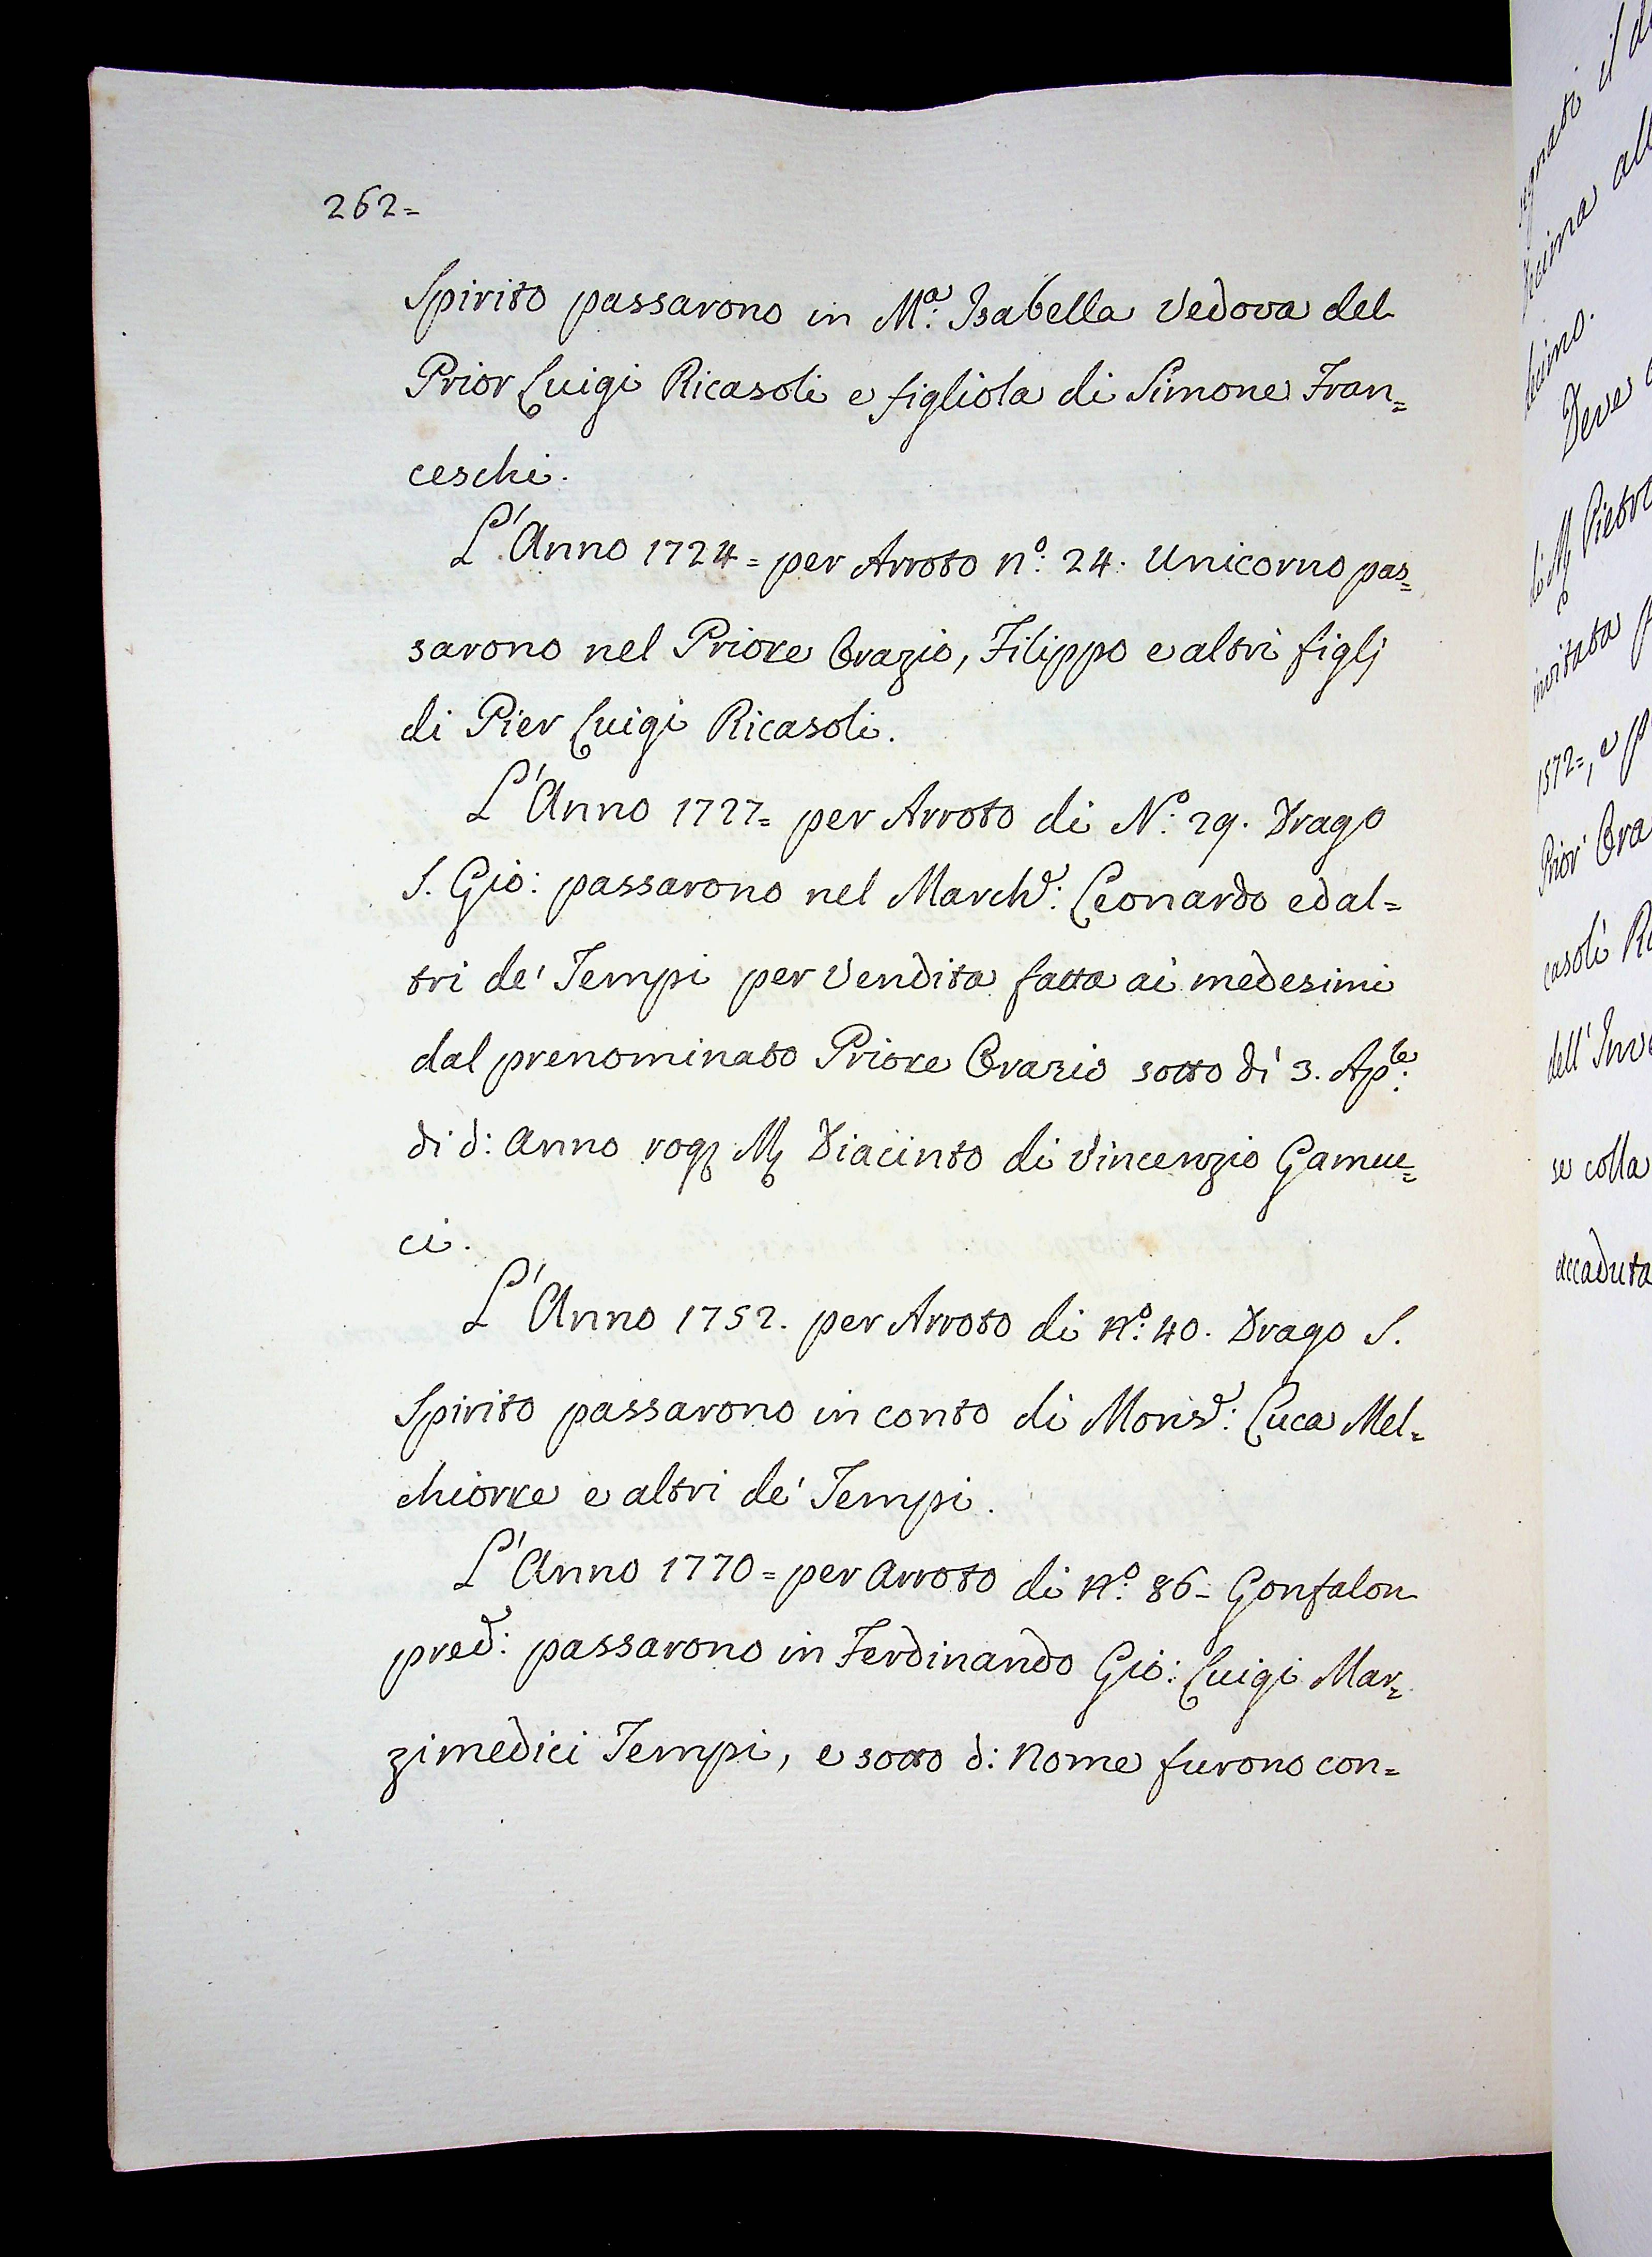 262=
Spirito passarono in M.ª Isabella Vedova del
Prior Luigi Ricasoli e figliola di Simone Fran=
ceschi.
L'Anno 1724= per Arroto nº: 24. Unicorno pas=
sarono nel Priore Orazio, Filippo e altri figlj
di Pier Luigi Ricasoli.
L'Anno 1727= per Arroto di Nº: 29. Drago
S. Gio: passarono nel March.e: Leonardo ed al=
tri de' Tempi per Vendita fatta ai medesimi
dal prenominato Priore Orazio sotto dì 3. Ap.le:
di d: Anno rog. M. Diacinto di Vincenzio Gamuc=
ci.
L'Anno 1752. per Arroto di Nº: 40. Drago S.
Spirito passarono in conto di Mons.r: Luca Mel=
chiorre e altri de' Tempi.
L'Anno 1770= per Arroto di Nº: 86= Gonfalon
pred: passarono in Ferdinando Gio: Luigi Mar=
zimedici Tempi, e sotto d: Nome furono con=
il
all
Deve
di M. Pietro
invitata
1572=, e
Prior Ora
casoli
dell' Inve
se colla
accaduta